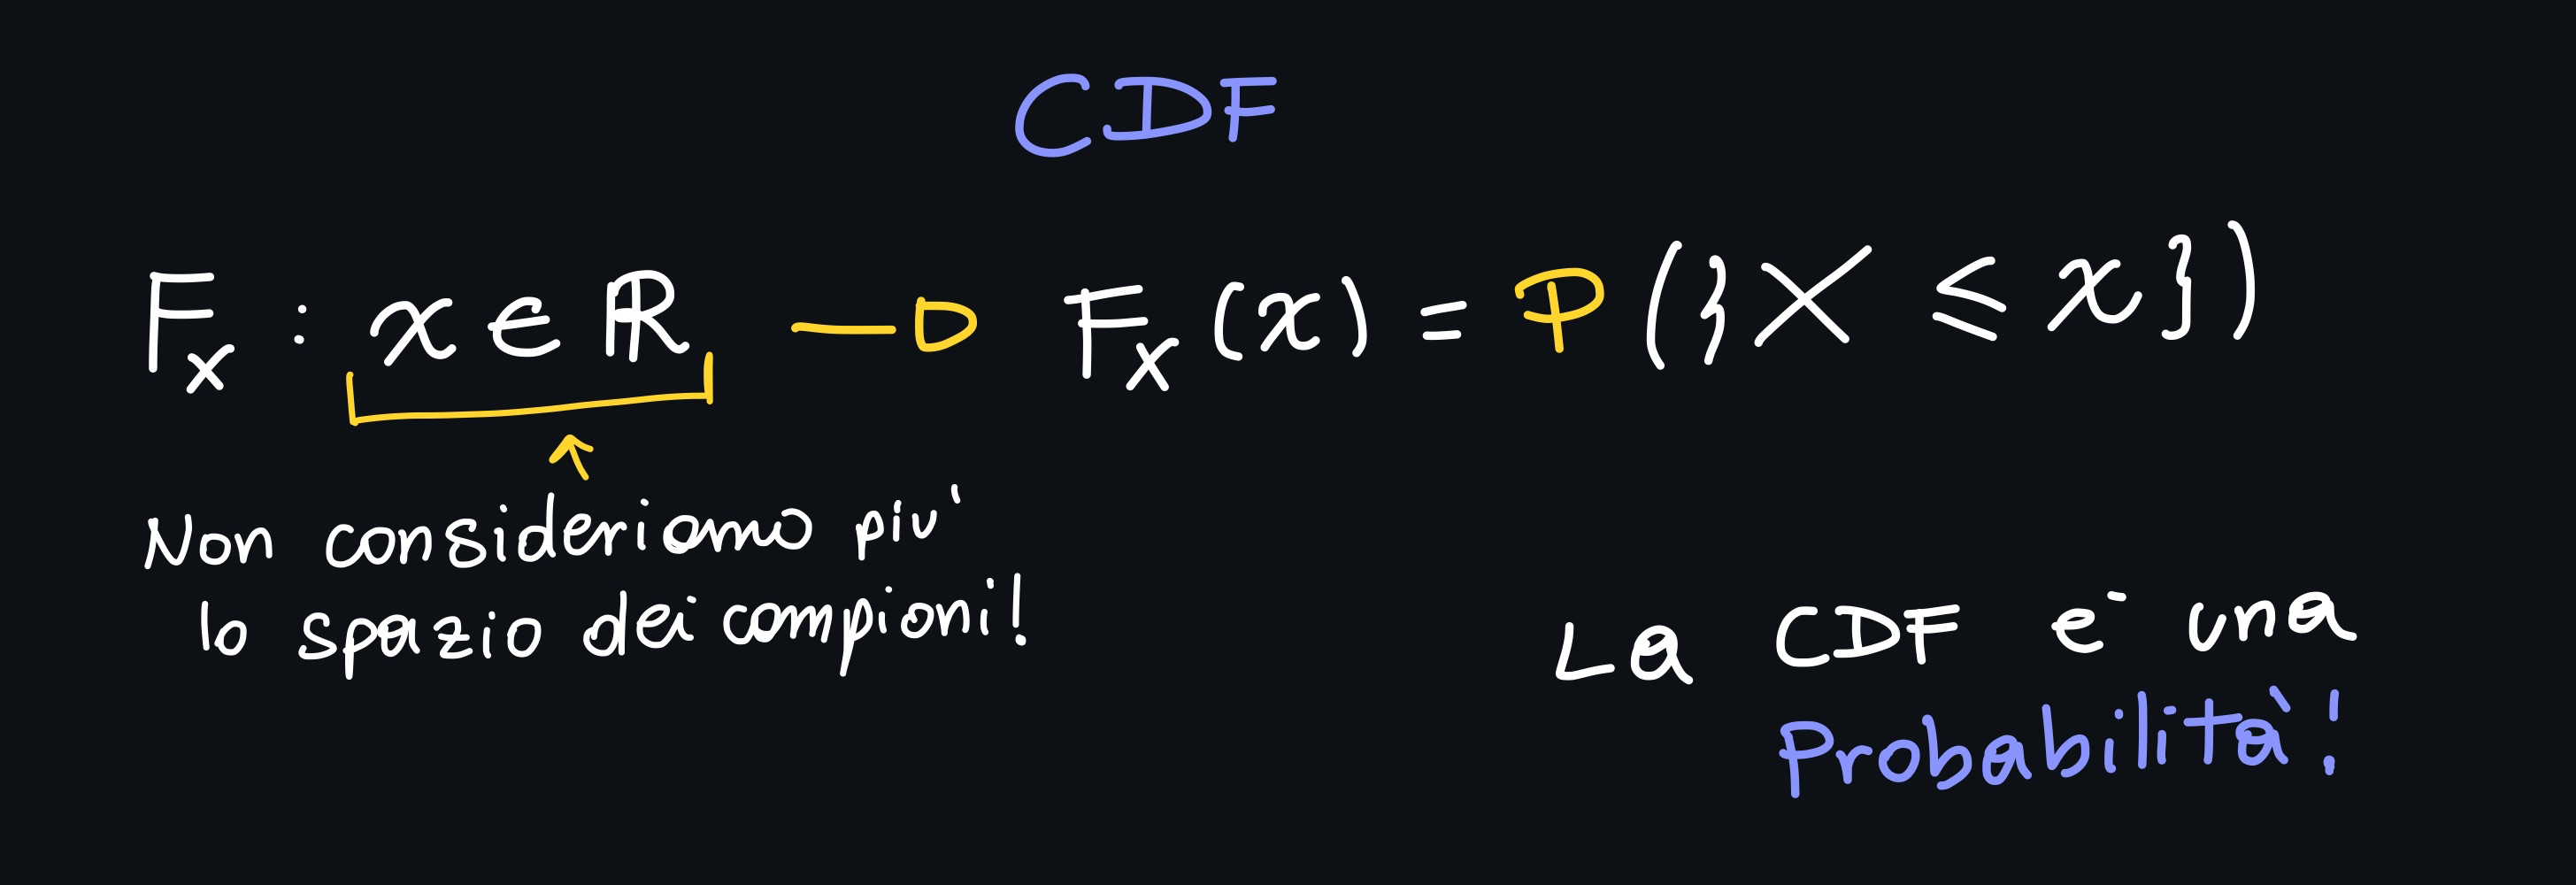 CDF
F_X : x ∈ ℝ → F_X(x) = P({X ≤ x})
Non consideriamo più
lo spazio dei campioni!
La CDF è una
Probabilità!